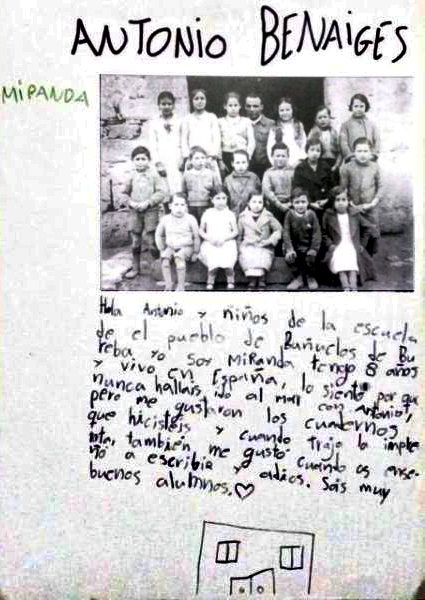 ANTONIO BENAIGES
MIRANDA
Hola Antonio y niños de la escuela
de el pueblo de Bañuelos de Bu
reba, yo soy MiRanda tengo 8 años
y vivo en España, lo siento por que
nunca hallais ido al mar con Antonio,
pero me gustaron los cuadernos
que hicisteis y cuando trajo la impre
nta, también me gustó cuando os ense-
ñó a escribir y adios. Sois muy
buenos alumnos.